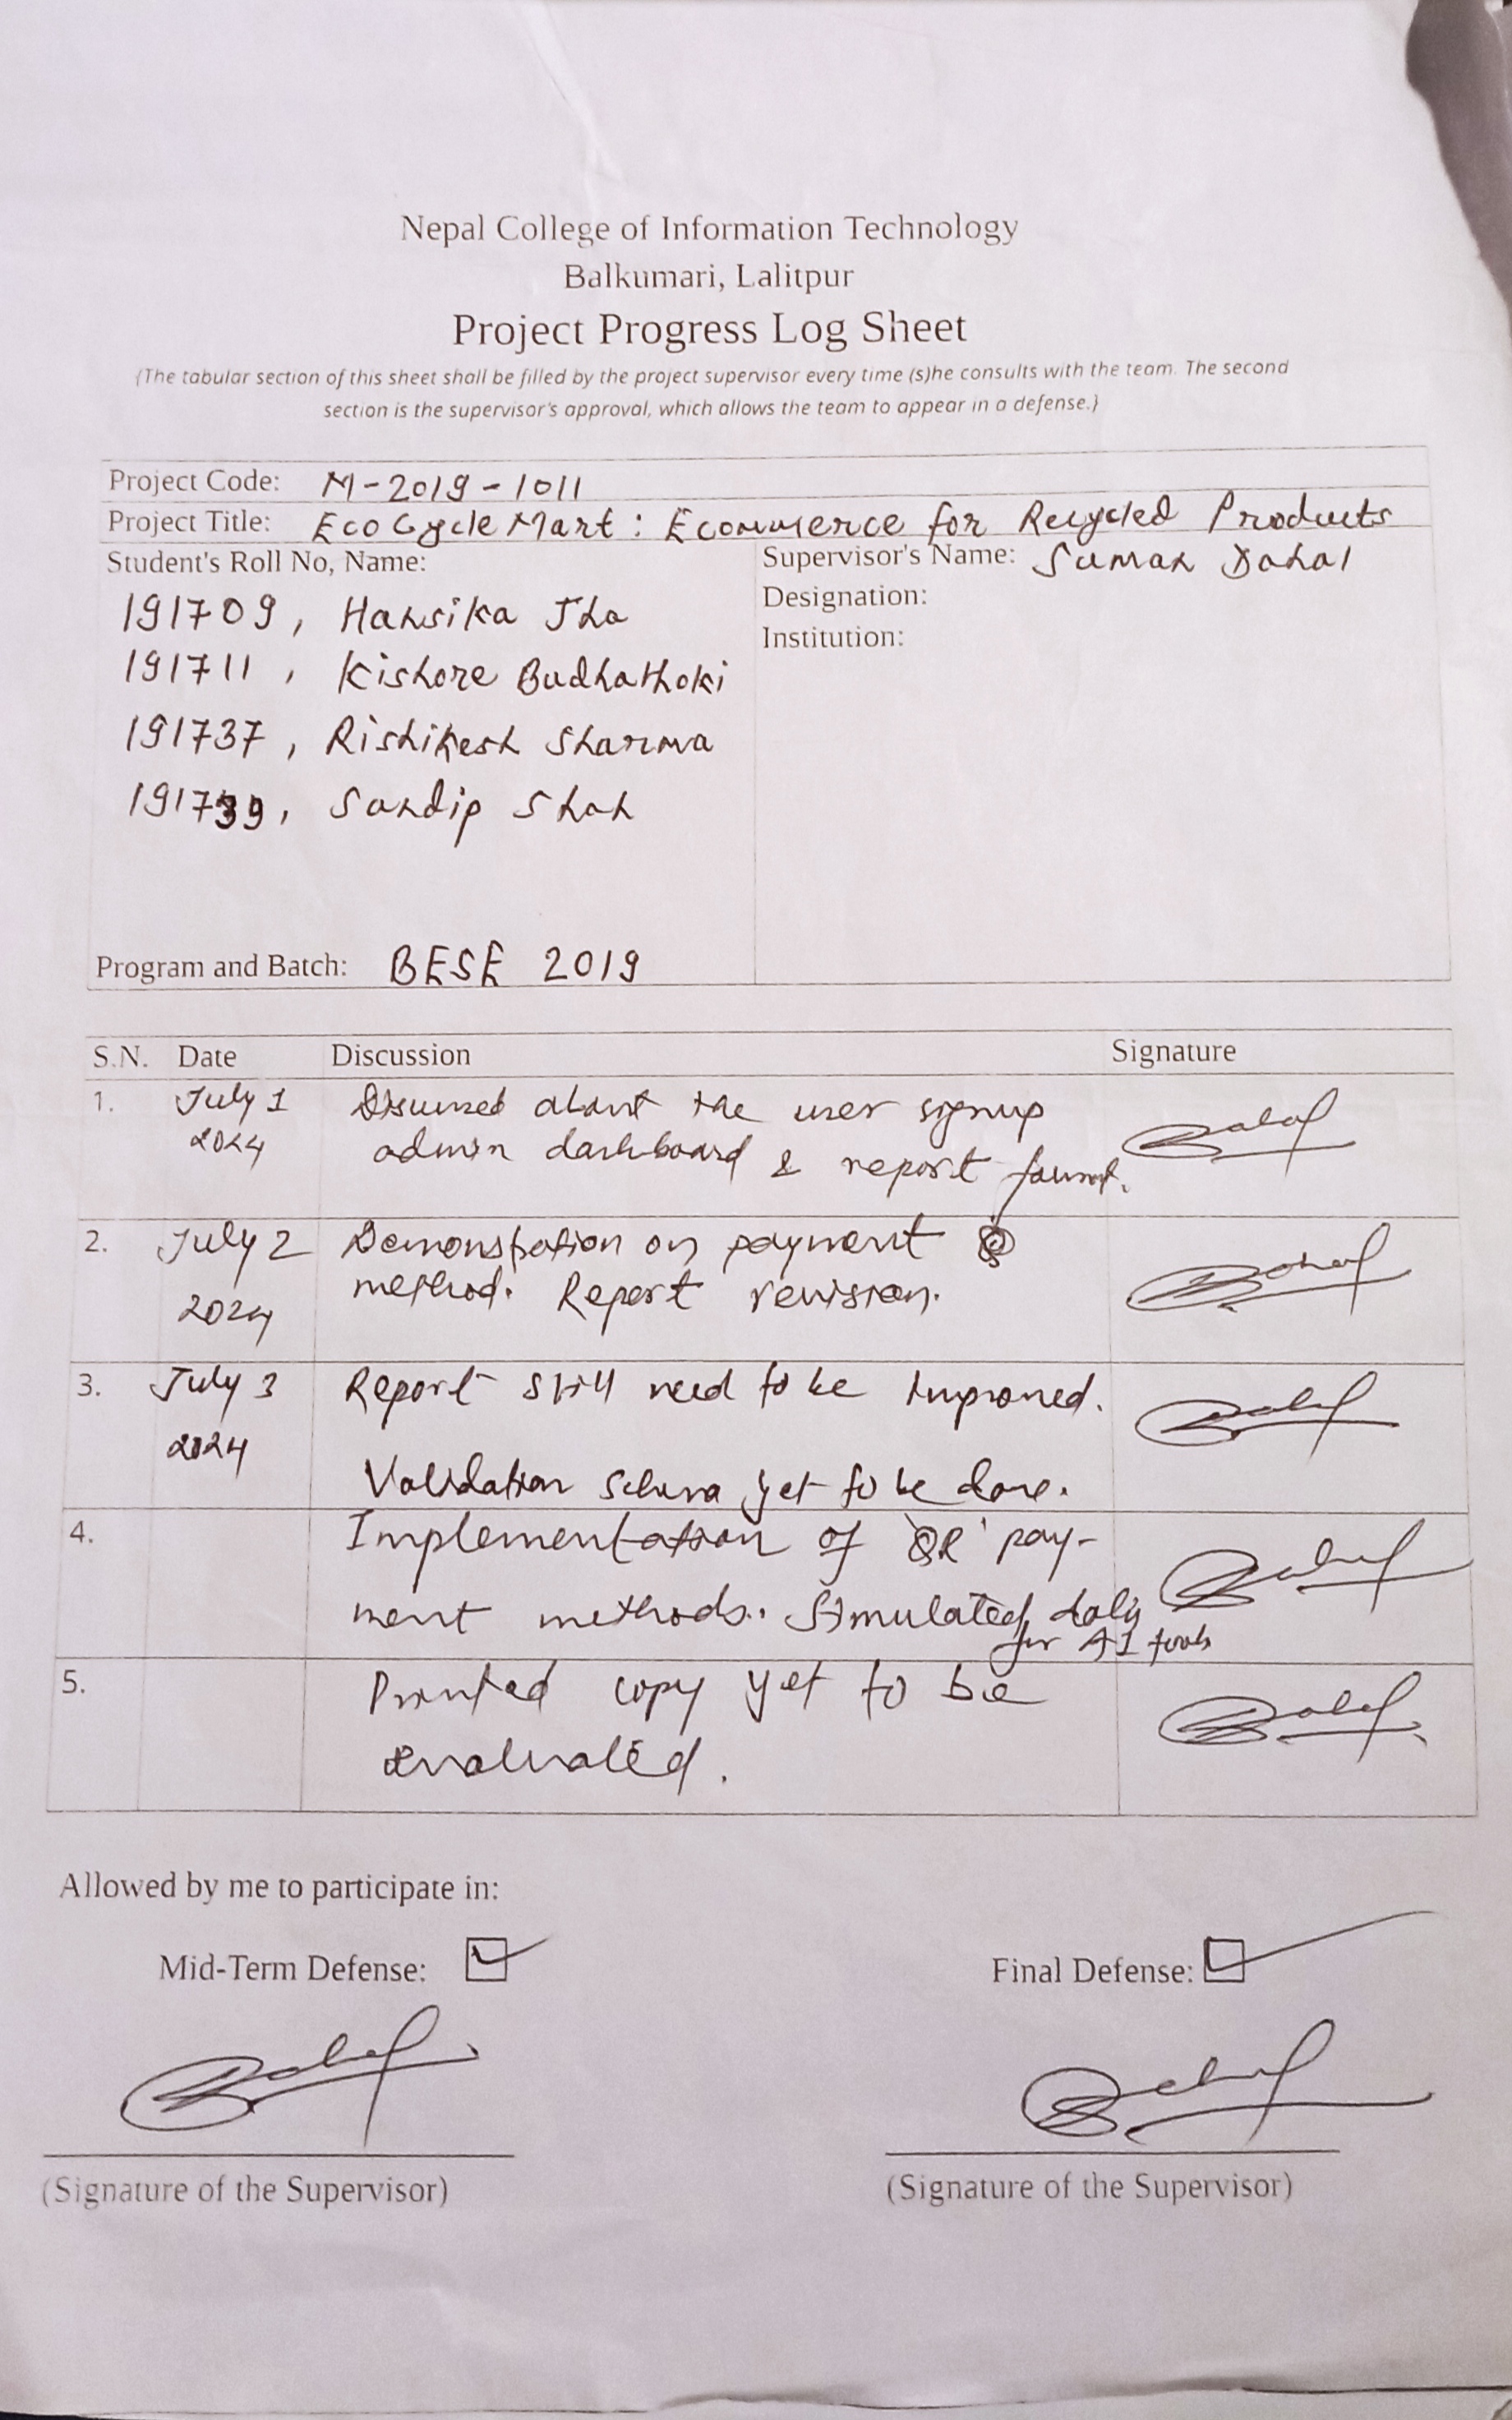 Nepal College of Information Technology
Balkumari, Lalitpur
Project Progress Log Sheet
(The tabular section of this sheet shall be filled by the project supervisor every time (s)he consults with the team. The second
section is the supervisor's approval, which allows the team to appear in a defense.)
Project Code: M-2019-1011
Project Title: EcoCycle Mart : Ecommerce for Recycled Products
Student's Roll No, Name:
191709, Hansika Jha
191711, Kishore Budhathoki
191737, Rishikesh Sharma
191739, Sandip Shah
Program and Batch: BESE 2019
Supervisor's Name: Suman Dahal
Designation:
Institution:
S.N. Date Discussion Signature
1. July 1 Discussed about the user signup
2024 admin dashboard & report format.
2. July 2 Demonstration on payment
2024 method. Report revision.
3. July 3 Report still need to be improved.
2024 Validation schema yet to be done.
4. Implementation of 'QR' pay-
ment methods. Stimulated
for AI tools
5. Printed copy yet to be
evaluated.
Allowed by me to participate in:
Mid-Term Defense: Final Defense:
(Signature of the Supervisor) (Signature of the Supervisor)